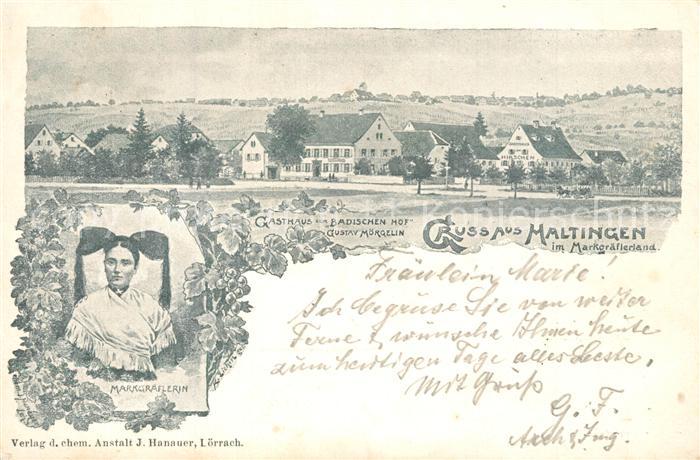 GASTHAUS
HIRSCHEN
GASTHAUS ZUM BADISCHEN HOF"
GUSTAV MÖRGELIN
GRUSS AUS HALTINGEN
im Markgräflerland.
Fräulein Marie!
Ich begrüse Sie von weiter
Ferne & wünsche Ihnen heute
zum heutigen Tage alles Beste,
Mit Gruß
G. F.
MARKGRÄFLERIN
Verlag d. chem. Anstalt J. Hanauer, Lörrach.